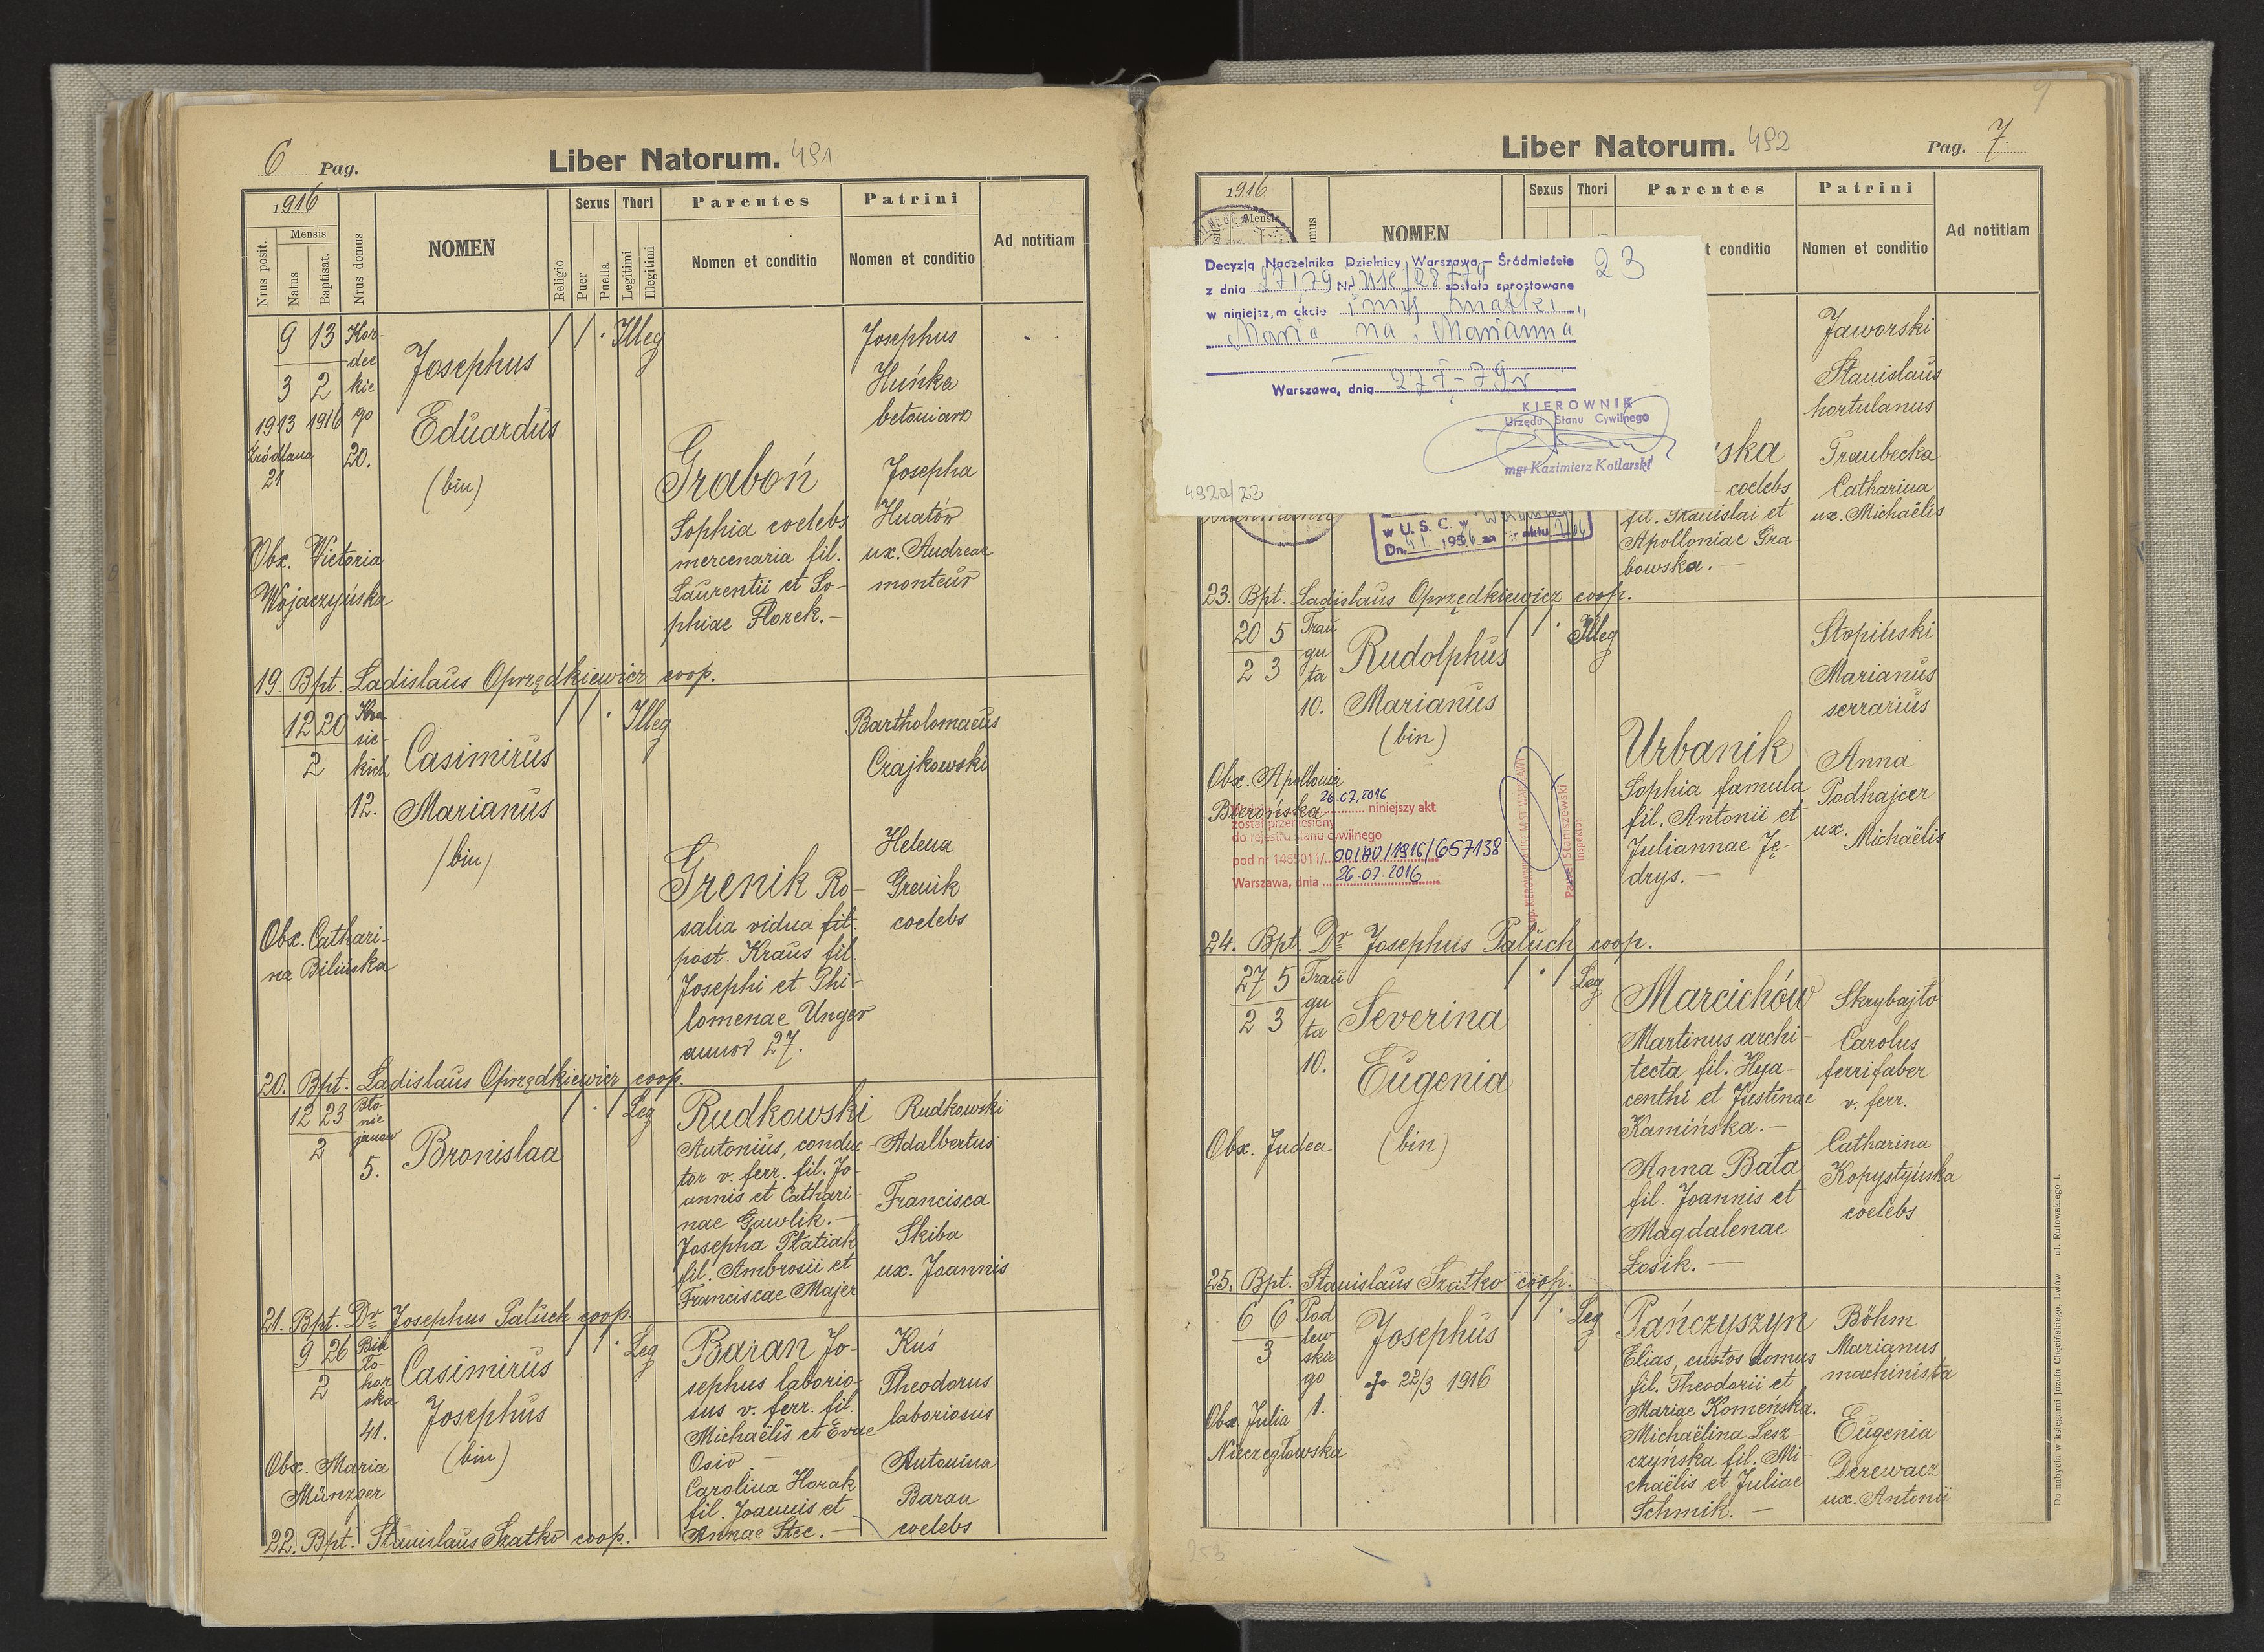 6 Pag.
Liber Natorum. 491
1916
Nrus posit.
Mensis
Natus
Baptisat.
Nrus domus
NOMEN
Religio
Sexus
Puer
Puella
Thori
Legitimi
Illegitimi
Parentes
Nomen et conditio
Patrini
Nomen et conditio
Ad notitiam
9 13 Kor-
dec
3 2 kie
1913 1916 go
Źródlana 20.
21
Josephus
Eduardus
(bin)
Illeg
Graboń
Sophia coelebs
mercenaria fil.
Laurentii et So-
phiae Florek.-
Josephus
Huńka
betoniarz
Josepha
Huatów
ux. Andreae
monteur
Obx. Victoria
Wojaczyńska
19. Bpt. Ladislaus Oprzędkiewicz coop.
12 20 Kra
sic-
2 kich
12.
Casimirus
Marianus
(bin)
Illeg
Grenik Ro-
salia vidua fil.
post. Kraus fil.
Josephi et Phi-
lomenae Unger
annor 27.
Bartholomaeus
Czajkowski
Helena
Grenik
coelebs
Obx. Cathari-
na Bilińska
20. Bpt. Ladislaus Oprzędkiewicz coop.
12 23 Bło-
nie
2 janow
5.
Bronislaa
Leg
Rudkowski
Antonius, conduc-
tor v. ferr. fil. Jo-
annis et Cathari-
nae Gawlik.-
Josepha Ptatiak
fil. Ambrosii et
Franciscae Majer
Rudkowski
Adalbertus
Francisca
Skiba
ux. Joannis
21. Bpt. Dr Josephus Paluch coop.
9 26 Bia
2 hor
ska
41.
Casimirus
Josephus
(bin)
Leg
Baran Jo-
sephus laborio-
sus v. ferr. fil.
Michaëlis et Evae
Osiv -
Carolina Horak
fil. Joannis et
Annae Stec.-
Kuś
Theodorus
laboriosus
Antonina
Baran
coelebs
Obx. Maria
Münzger
22. Bpt. Stanislaus Szatko coop.
Liber Natorum. 492
Pag. 7.
1916
Mensis
NOMEN
Sexus
Thori
Parentes
t conditio
Patrini
Nomen et conditio
Ad notitiam
Decyzją Naczelnika Dzielnicy Warszawa – Śródmieście 23
z dnia 27 I 79 Nr USC/28/79 zostało sprostowane
w niniejszym akcie imię matki
"Maria" na "Marianna"
Warszawa, dnia 27-I-79r
KIEROWNIK
Urzędu Stanu Cywilnego
mgr Kazimierz Kotlarski
4920/23
w U. S. C. w
ska
coelebs
fil. Stanislai et
Apolloniae Gra-
bowska.-
Jaworski
Stanislaus
hortulanus
Traubecka
Catharina
ux. Michaëlis
23. Bpt. Ladislaus Oprzędkiewicz coop.
20 5 Trau
gu
2 3 ta
10.
Rudolphus
Marianus
(bin)
Illeg
Urbanik
Sophia famula
fil. Antonii et
Juliannae Ję-
drys.-
Stopiński
Marianus
serrarius
Anna
Podhajcer
ux. Michaëlis
Obx. Apollonia
Bierońska
26.07.2016 niniejszy akt
został przeniesiony
do rejestru stanu cywilnego
pod nr 1465011/00/AU/1916/657138
Warszawa, dnia 26.07.2016
Paweł Staniszewski
Inspektor
24. Bpt. Dr Josephus Paluch coop.
27 5 Trau
gu
2 3 ta
10.
Severina
Eugenia
(bin)
Leg
Marcichów
Martinus archi-
tecta fil. Hya-
centhi et Justinae
Kamińska.-
Anna Bała
fil. Joannis et
Magdalenae
Łosik.-
Skrybajło
Carolus
ferrifaber
v. ferr.
Catharina
Kopystyńska
coelebs
Obx. Judea
25. Bpt. Stanislaus Szatko coop.
6 6 Pod
lew
3 skie
go
1.
Josephus
22/3 1916
Leg
Pańczyszyn
Elias, custos domus
fil. Theodorii et
Mariae Komeńska.
Michaëlina Lesz-
czyńska fil. Mi-
chaëlis et Juliae
Schmik.-
Böhm
Marianus
machinista
Eugenia
Derewacz
ux. Antonii
Obx. Julia
Nieczegłowska
253
Do nabycia w księgarni Józefa Chęcińskiego, Lwów — ul. Rutowskiego 1.